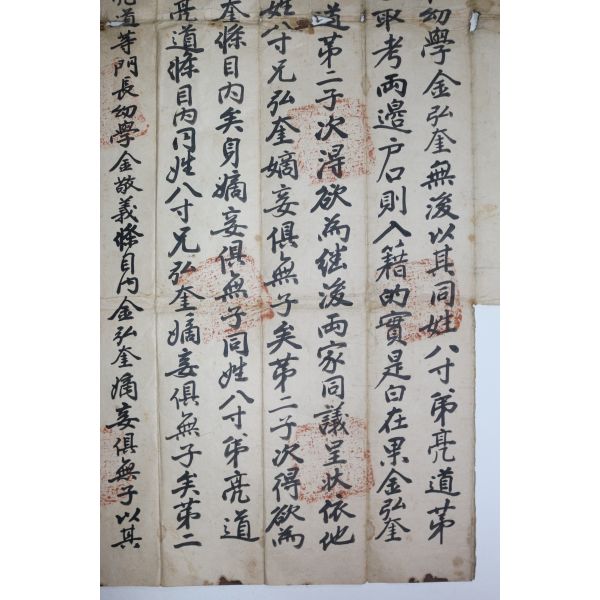 幼學金弘奎無後以其同姓八寸弟亮道第
取考両邊戶口則入籍的實是白在果金弘奎
道第二子次得欲爲継後両家同議呈狀依他
姓八寸兄弘奎嫡妾俱無子矣第二子次得欲爲
奎條目內矣身嫡妾俱無子同姓八寸弟亮道
亮道條目內同姓八寸兄弘奎嫡妾俱無子矣第二
亮道等門長幼學金敬義條目內金弘奎嫡妾俱無子以其